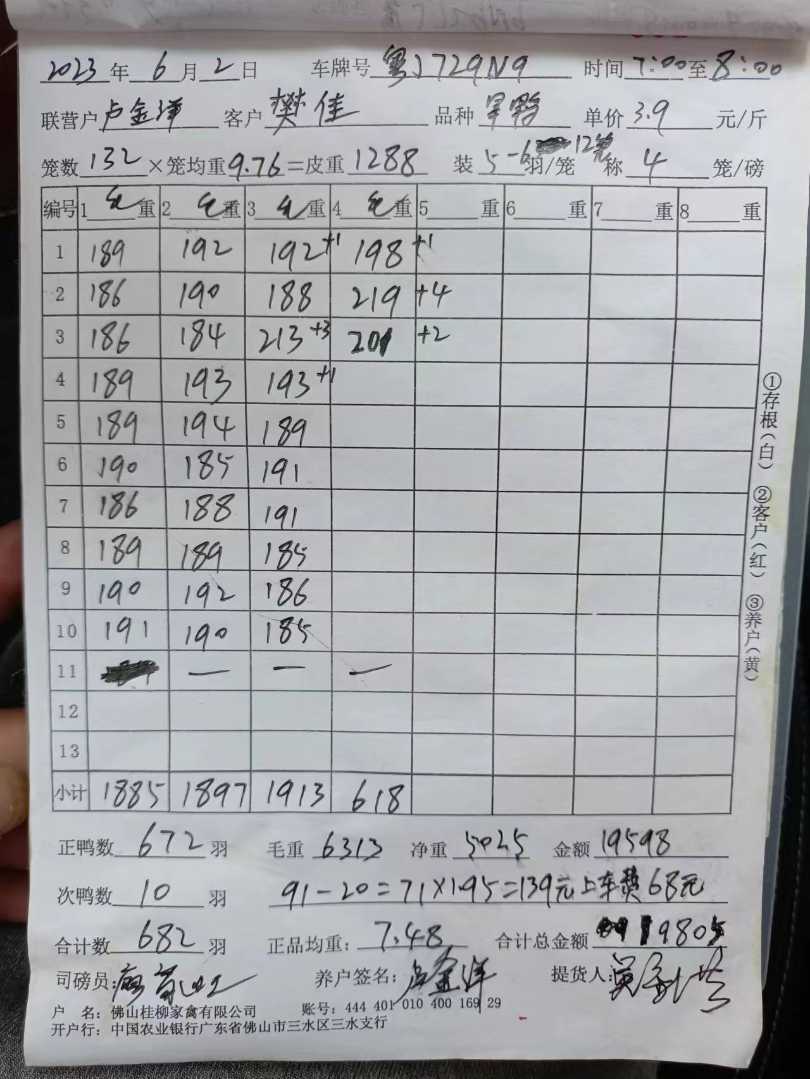 2023年6月2日 车牌号 粤J729N9 时间7:00至8:00
联营户 卢金洋 客户 樊佳 品种 旱鸭 单价3.9元/斤
笼数132×笼均重9.76=皮重1288 装5-6羽/笼 12笼 称4笼/磅
编号 1毛重 2毛重 3毛重 4毛重 5重 6重 7重 8重
1 189 192 192+1 198+1
2 186 190 188 219+4
3 186 184 213+3 201+2
4 189 193 193+1
5 189 194 189
6 190 185 191
7 186 188 191
8 189 189 185
9 190 192 186
10 191 190 185
11 — — —
12
13
小计 1885 1897 1913 618
正鸭数672羽 毛重6313 净重5025 金额19598
次鸭数10羽 91-20=71×1.95=139元 上车费68元
合计数682羽 正品均重:7.48 合计总金额19805
司磅员: 养户签名:卢金洋 提货人:
户 名:佛山桂柳家禽有限公司 账号:444 401 010 400 169 29
开户行:中国农业银行广东省佛山市三水区三水支行
①存根(白) ②客户(红) ③养户(黄)